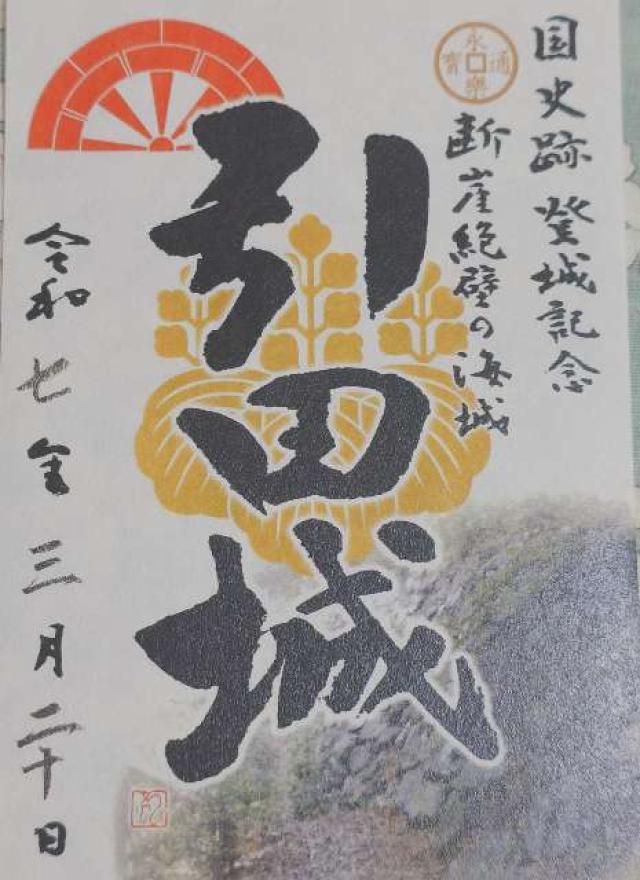 国史跡 登城記念
永楽通寳
断崖絶壁の海城
引田城
令和七年三月二十日